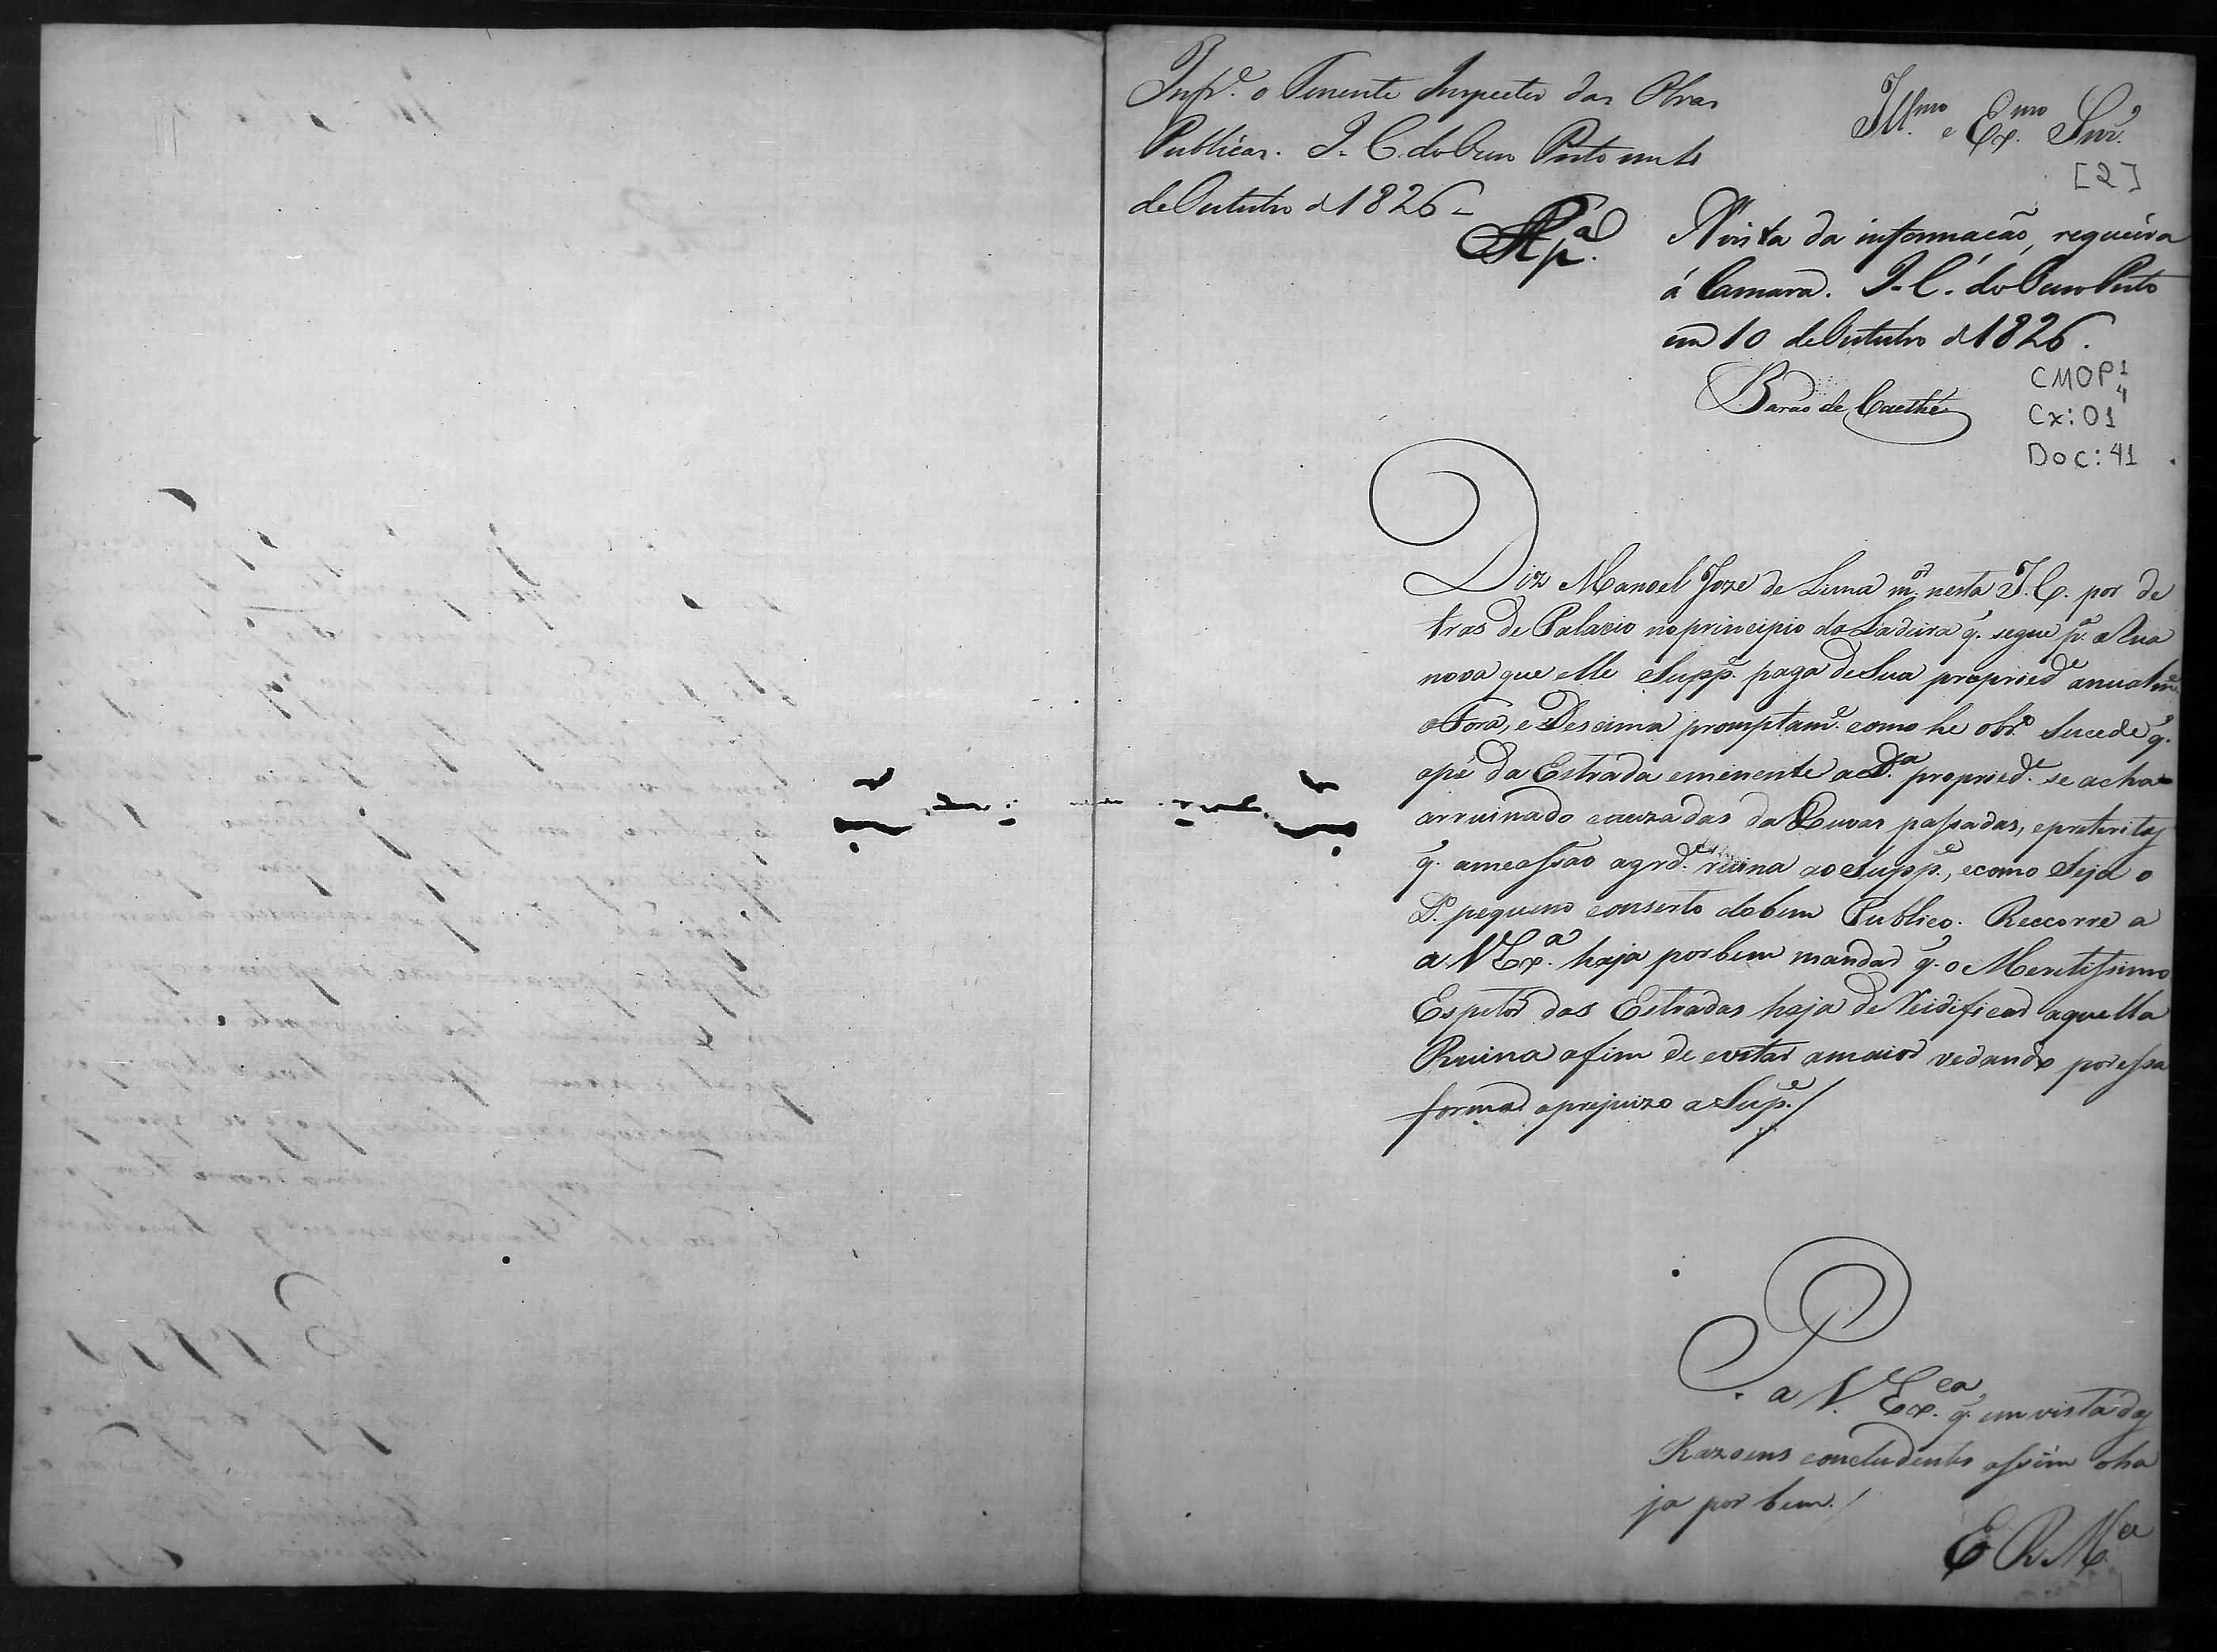 Inf.e o Tenente Inspector das Obras
Publicas. I. C. do Ouro Preto em 6
de Outubro d 1826 -
Ill.mo e Ex.mo Snr.
[2]
Á vista da informacão, requeira
á Camara. I. C. do Ouro Preto
em 10 de Outubro d 1826.
Barão de Caethé
CMOP 1
4
Cx: 01
Doc: 41
Diz Manoel Joze de Lima m.or nesta I. C. por de
tras de Palacio no principio da Ladeira q. segue p.a a Rua
nova que elle Supp.e paga de Sua propried.e anualm.e
o Foro, e Descima promptam.e como he obr.o Sucede q.
apé da Estrada eminente a D.a propried.e se acha
arruinado cauzadas das Chuvas passadas, e preteritas
q. ameassão a grd.e ruina ao Supp.e, e como Seja o
D.o pequeno conserto do bem Publico. Reccorre a
a V Ex.a haja por bem mandar q. o Meretissimo
Espetor das Estradas haja de Reidificar aquella
Ruina afim de evitar a maior vedando por essa
forma o prejuizo a Sup.e /
P. a V. Ex.ca q. em vista das
Razoens concludentes assim o ha
ja por bem. /
E R M.ce